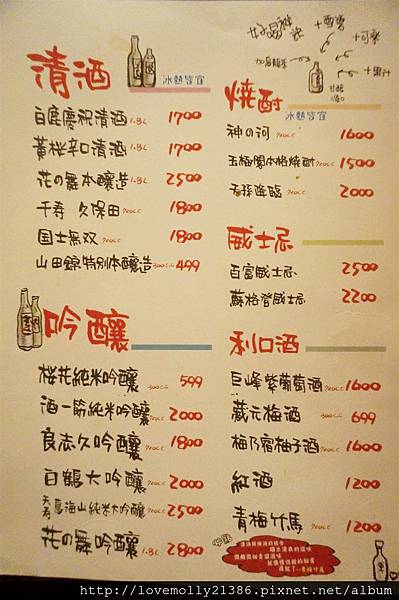 清酒
冰熱皆宜
白鹿慶祝清酒 1.8L 1700
黃桜辛口清酒 1.8L 1700
花の舞本釀造 1.8L 2500
千寿 久保田 720cc 1800
国士無双 720cc 1800
山田錦特別本釀造 300cc 499
吟釀
桜花純米吟釀 300cc 599
酒一筋純米吟釀 720cc 2000
良志久吟釀 720cc 1800
白鶴大吟釀 720cc 2000
天寿鳥海山純米大吟釀 720cc 2500
花の舞吟釀 1.8L 2800
+可樂
+果汁
燒酎
冰熱皆宜
神の河 720cc 1600
本格燒酎 720cc 1500
降臨 720cc 2000
威士忌
百富威士忌 2500
蘇格登威士忌 2200
利口酒
巨峰紫葡萄酒 720cc 1600
蔵元梅酒 300cc 699
梅乃宿柚子酒 720cc 1600
紅酒 1200
青梅竹馬 1200
http://lovemolly21386.pixnet.net/album